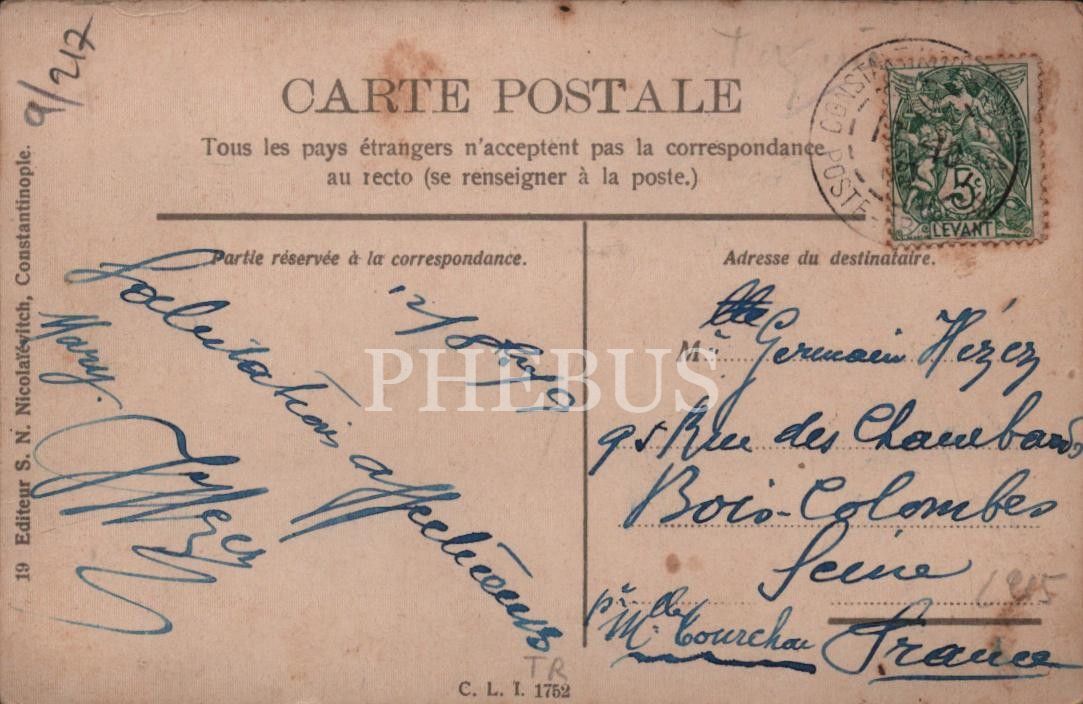 9/217
CARTE POSTALE
Tous les pays étrangers n'acceptent pas la correspondance
au recto (se renseigner à la poste.)
CONSTANT
POSTE
5c
LEVANT
Partie réservée à la correspondance.
Salutations affectueuses
Mary.
Adresse du destinataire.
M Germain Hézez
95 Rue des Chambards
Bois-Colombes
Seine
pr Mlle Tourchou
France
PHEBUS
19 Editeur S. N. Nicolaïévitch, Constantinople.
TR
C. L. I. 1752